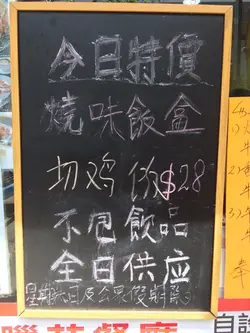 今日特價
燒味飯盒
切鸡价$28
不包飲品
全日供应
星期六日及公眾假期
餐廳
自